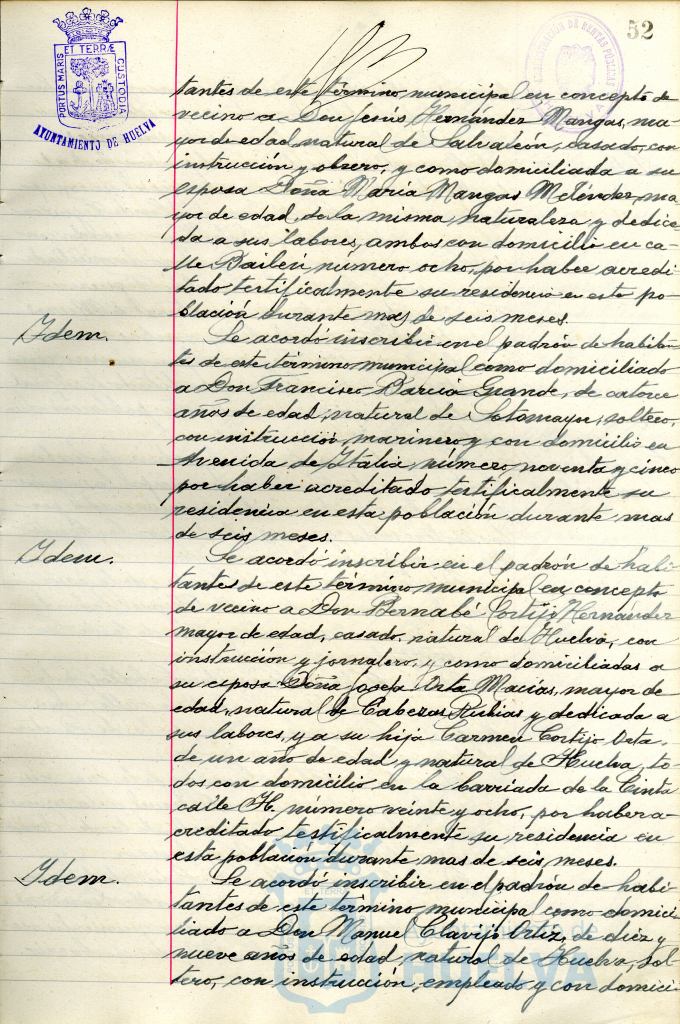 52
PORTUS MARIS ET TERRÆ CUSTODIA
AYUNTAMIENTO DE HUELVA
tantes de este término municipal en concepto de
vecino a Don Jesús Hernández Mangas, ma-
yor de edad, natural de Salvaleón, casado, con
instrucción y obrero, y como domiciliada a su
esposa Doña María Mangas Meléndez, ma-
yor de edad, de la misma naturaleza y dedica-
da a sus labores, ambos con domicilio en ca-
lle Bailén número ocho, por haber acredi-
tado testificalmente su residencia en esta po-
blación durante mas de seis meses.
Idem.
Se acordó inscribir en el padrón de habitan-
tes de este término municipal como domiciliado
a Don Francisco Barciá Grande, de catorce
años de edad, natural de Sotomayor, soltero,
con instrucción, marinero y con domicilio en
Avenida de Italia, número noventa y cinco
por haber acreditado testificalmente su
residencia en esta población durante mas
de seis meses.
Idem.
Se acordó inscribir en el padrón de habi-
tantes de este término municipal en concepto
de vecino a Don Bernabé Cortijo Hernández
mayor de edad, casado, natural de Huelva, con
instrucción y jornalero, y como domiciliadas a
su esposa Doña Josefa Orta Macías, mayor de
edad, natural de Cabezas Rubias y dedicada a
sus labores, y a su hija Carmen Cortijo Orta,
de un año de edad y natural de Huelva, to-
dos con domicilio en la barriada de la Cinta
calle H. número veinte y ocho, por haber a-
creditado testificalmente su residencia en
esta población durante mas de seis meses.
Idem.
Se acordó inscribir en el padrón de habi-
tantes de este término municipal como domici-
liado a Don Manuel Clavijo Ortiz, de diez y
nueve años de edad, natural de Huelva, sol-
tero, con instrucción, empleado y con domici-
HUELVA